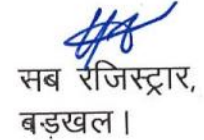 सब रजिस्ट्रार,
बड़खल।